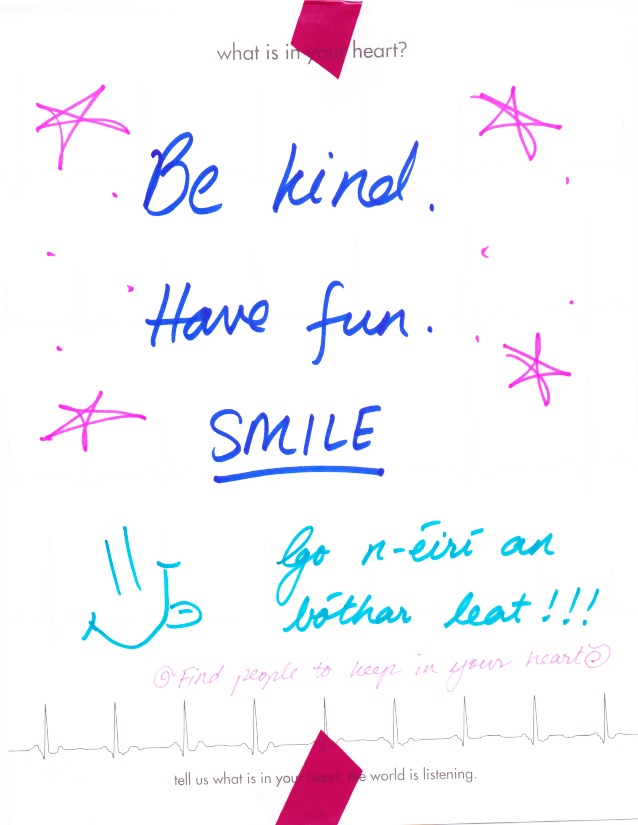 what is in your heart?
Be kind.
Have fun.
SMILE
Go n-éirí an
bóthar leat!!!
Find people to keep in your heart
tell us what is in your heart: the world is listening.